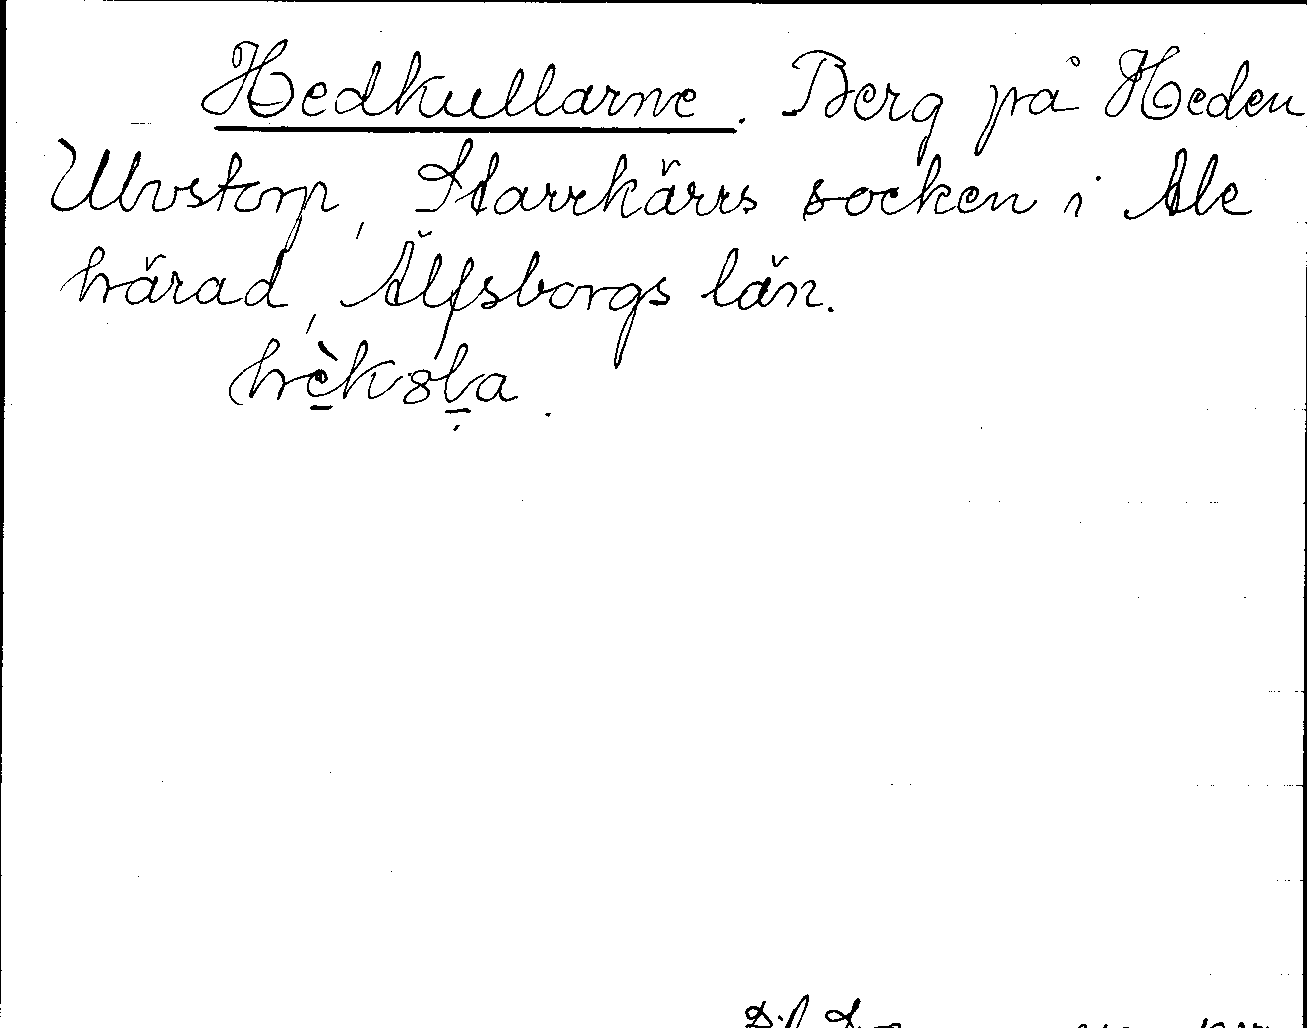 Hedkullarne. Berg på Heden
Ulvstorp, Starrkärrs socken i Ale
härad, Älfsborgs län.